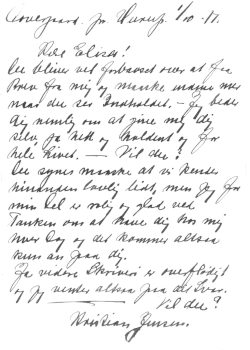 Overgaard. pr. Aarup. 1/10 - 17.
Kære Elise!
De bliver vel forbavset over at faa
Brev fra mig og maaske endnu mer
naar De ser Indholdet. - Jeg beder
Dig nemlig om at give mig dig
selv, ja helt og holdent og for
hele Livet. — Vil du?
De synes maaske at vi kender
hinanden lovlig lidt, men jeg for
min Del er rolig og glad ved
Tanken om at have dig hos mig
hver Dag og det kommer altsaa
kun an paa dig.
Ja videre Skriveri er overflødigt
og jeg venter altsaa paa dit Svar.
Vil du?
Kristian Jensen.